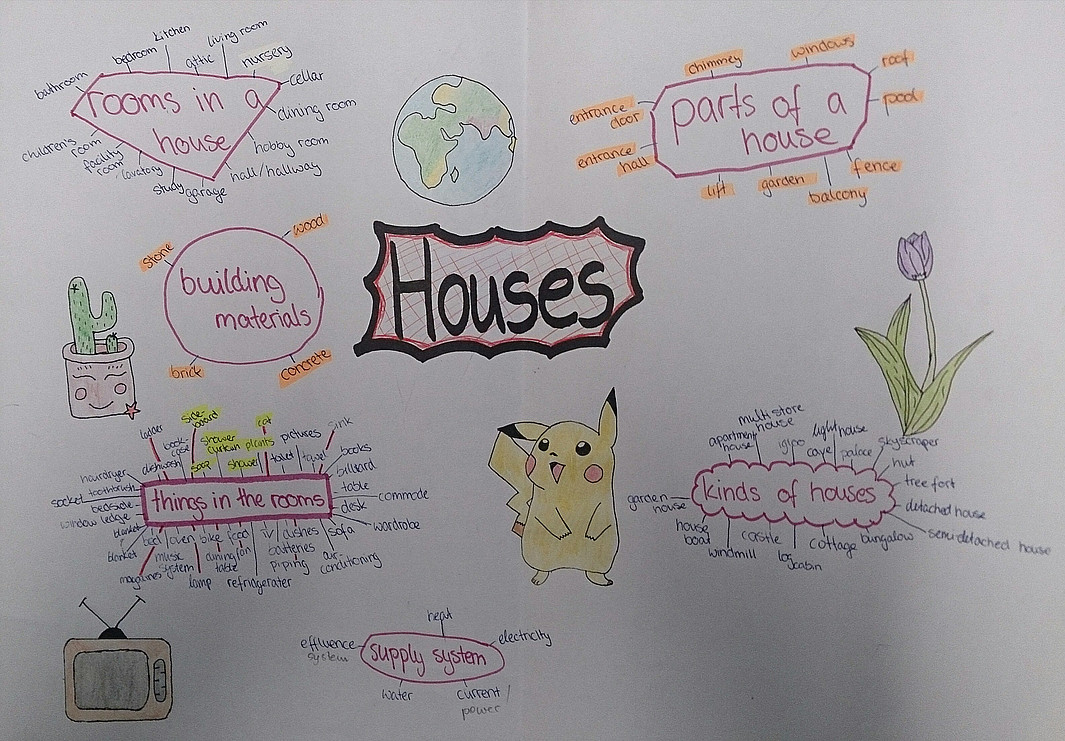 Kitchen
living room
bedroom
attic
nursery
bathroom
cellar
rooms in a
house
dining room
hobby room
children's
room
facility
room
lavatory
hall/hallway
study
garage
chimney
windows
roof
pool
entrance
door
parts of a
house
entrance
hall
lift
garden
fence
balcony
wood
stone
building
materials
brick
concrete
Houses
ladder
book-
case
dishwash
side-
board
soap
shower
curtain
shower
cat
plants
toilet
pictures
towel
sink
books
billiard
table
commode
desk
wardrobe
hairdryer
socket
toothbrush
bedside
window ledge
blanket
things in the rooms
bed
oven
bike
food
TV
dishes
sofa
blanket
magazines
music
system
lamp
dining
table
fan
refrigerater
batteries
piping
air
conditioning
multi store
house
apartment
house
igloo
lighthouse
cave
palace
skyscraper
hut
tree fort
detached house
semi-detached house
garden
house
kinds of houses
house
boat
windmill
castle
log
cabin
cottage
bungalow
heat
effluence
system
electricity
supply system
water
current/
power